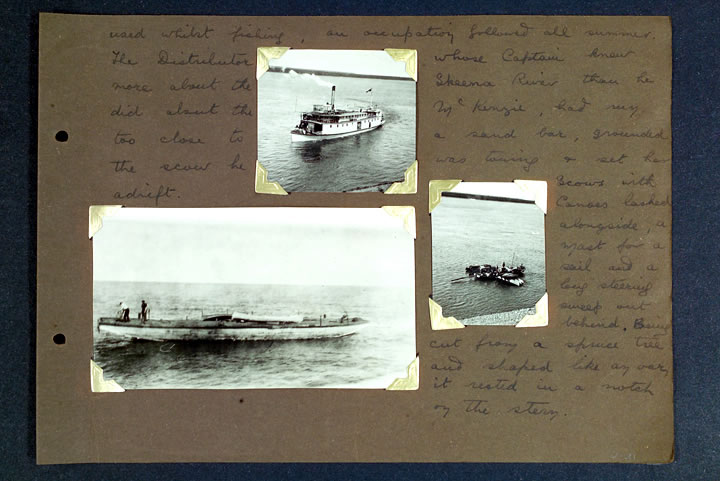 used whilst fishing, an occupation followed all summer.
The Distributor whose Captain knew
more about the Skeena River than he
did about the McKenzie, had run
too close to a sand bar, grounded
the scow he was towing & set her
adrift.
Scows with
Canoes lashed
alongside, a
mast for a
sail and a
long steering
sweep out
behind. Being
cut from a spruce tree
and shaped like an oar,
it rested in a notch
on the stern.